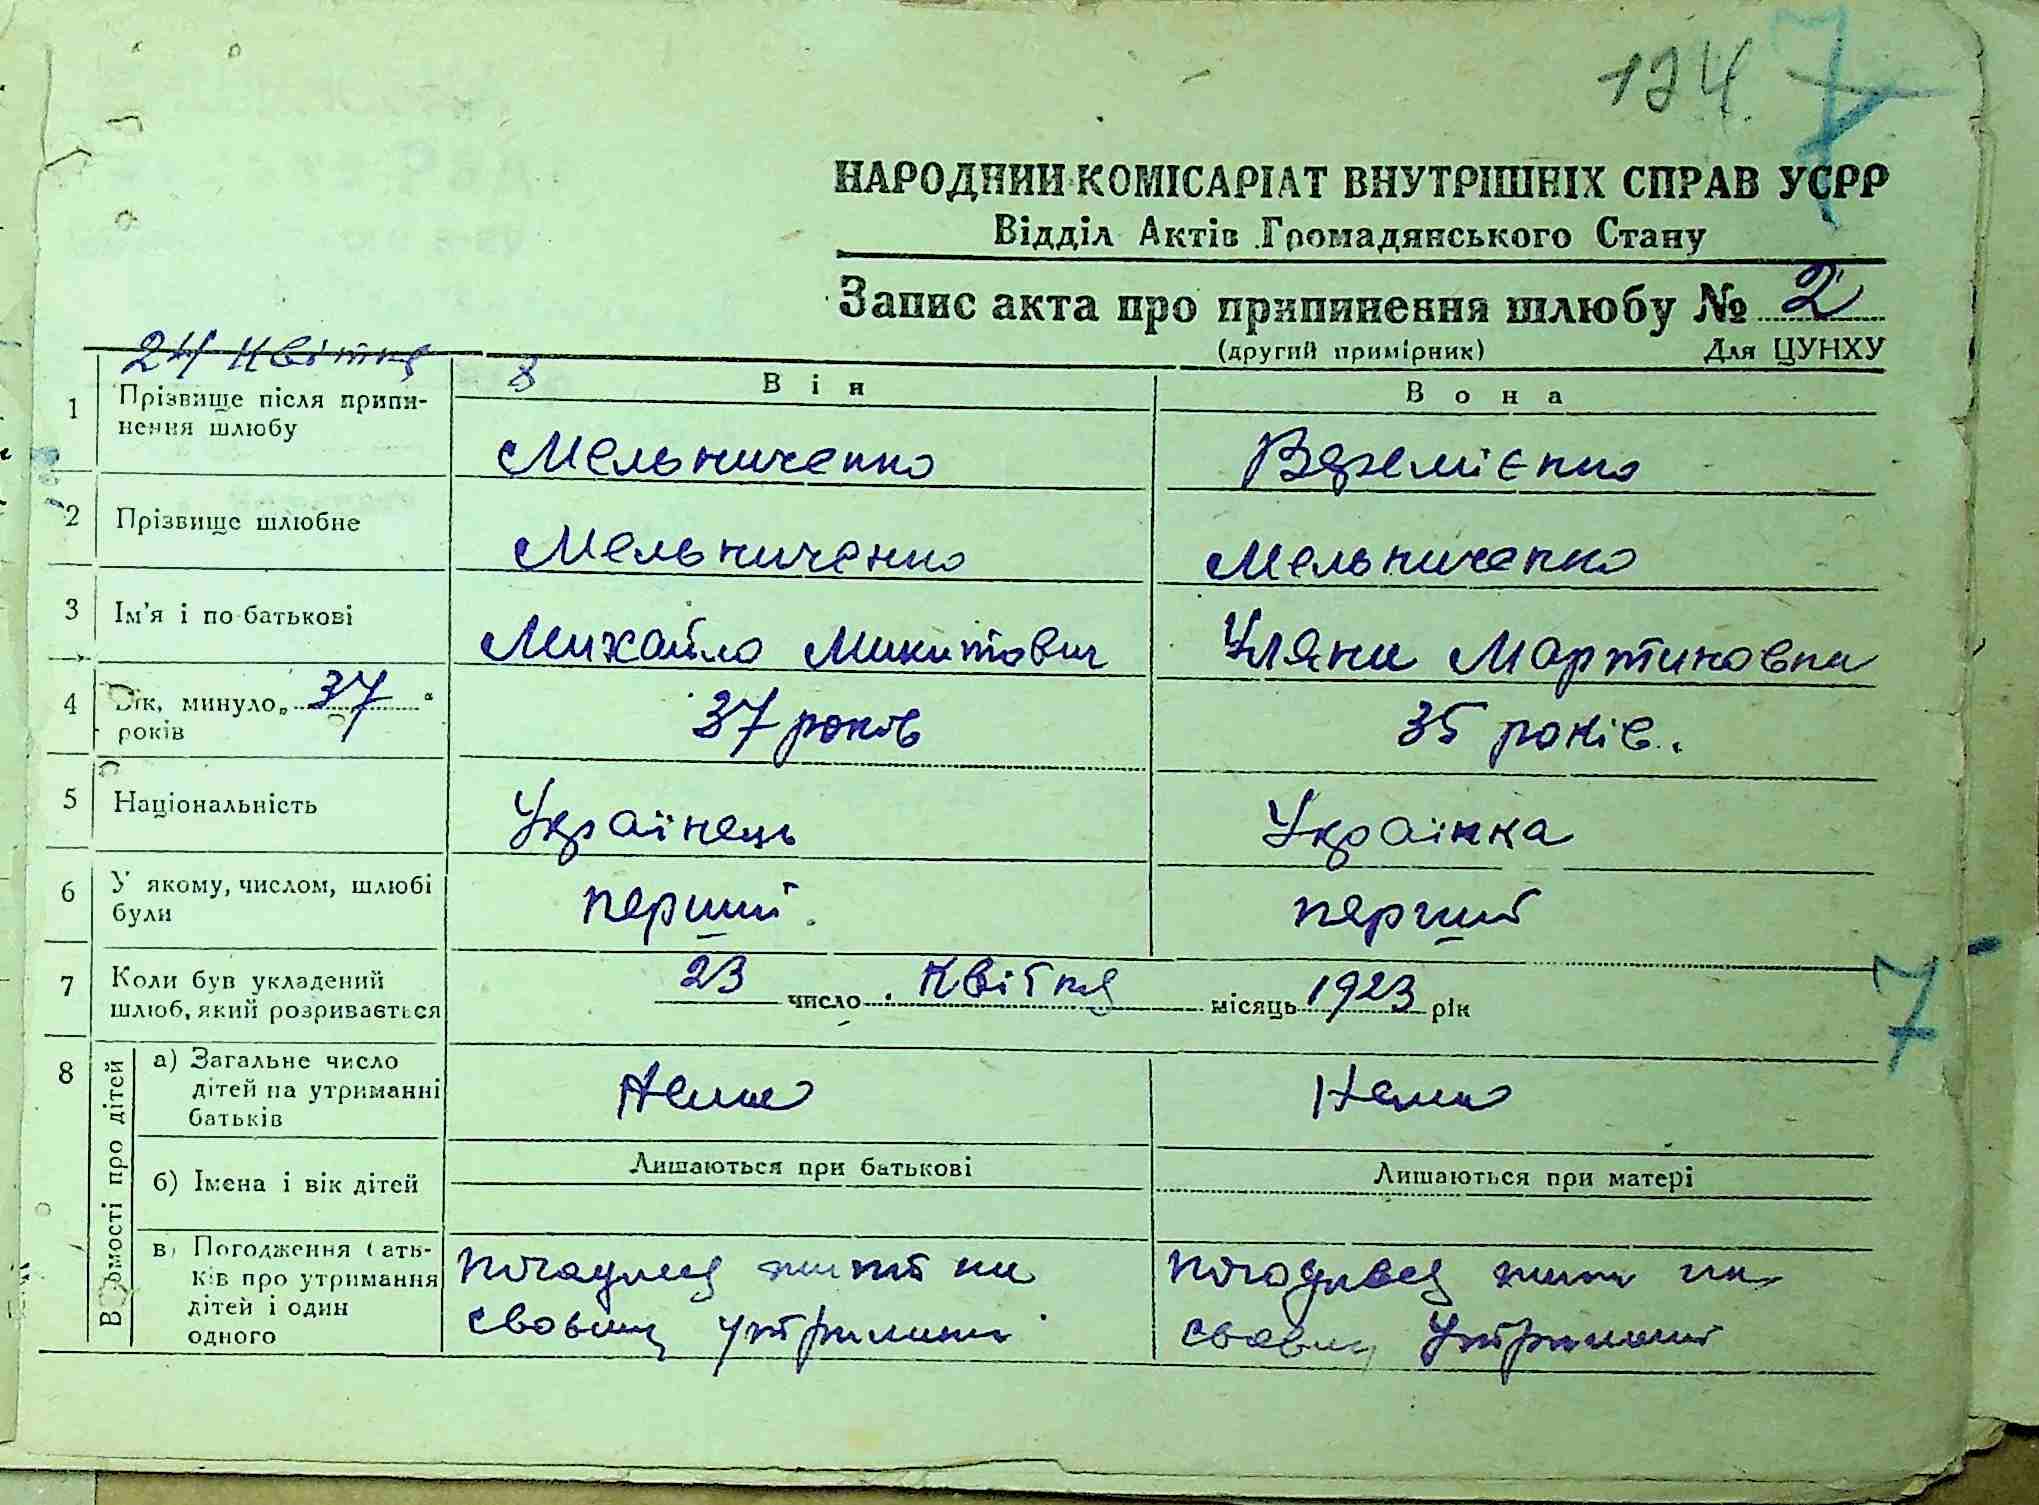 124. 7
НАРОДНИЙ КОМІСАРІАТ ВНУТРІШНІХ СПРАВ УСРР
Відділ Актів Громадянського Стану
Запис акта про припинення шлюбу № 2
(другий примірник) Для ЦУНХУ
24 Квітня 8
Він Вона
1 Прізвище після припи-
нення шлюбу
Мельниченко Веремієнко
2 Прізвище шлюбне Мельниченко Мельниченко
3 Ім'я і по батькові Михайло Микитович Уляни Мартиновни
4 Вік, минуло „37“
років
37 років 35 років.
5 Національність Українець Українка
6 У якому, числом, шлюбі
були
перший. перший
7 Коли був укладений
шлюб, який розривається
23 число Квітня місяць 1923 рік
7
8 Відомості про дітей
а) Загальне число
дітей на утриманні
батьків
Нема Нема
б) Імена і вік дітей
Лишаються при батькові Лишаються при матері
в) Погодження бать-
ків про утримання
дітей і один
одного
на
утримані